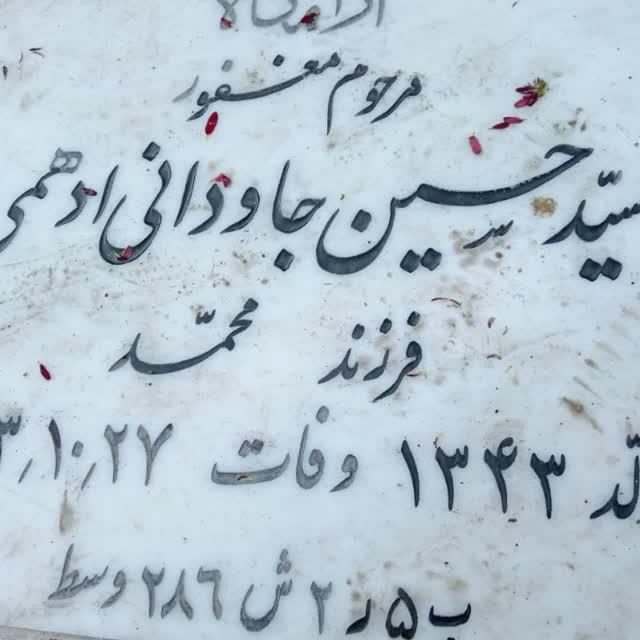 مرحوم مغفور
سیّد حسین جاودانی ادهمی
فرزند محمّد
۱۳۴۳ وفات ۲۷ ر ۱۰ ر
ب ۵ ر ۲ ش ۲۸۶ وسط